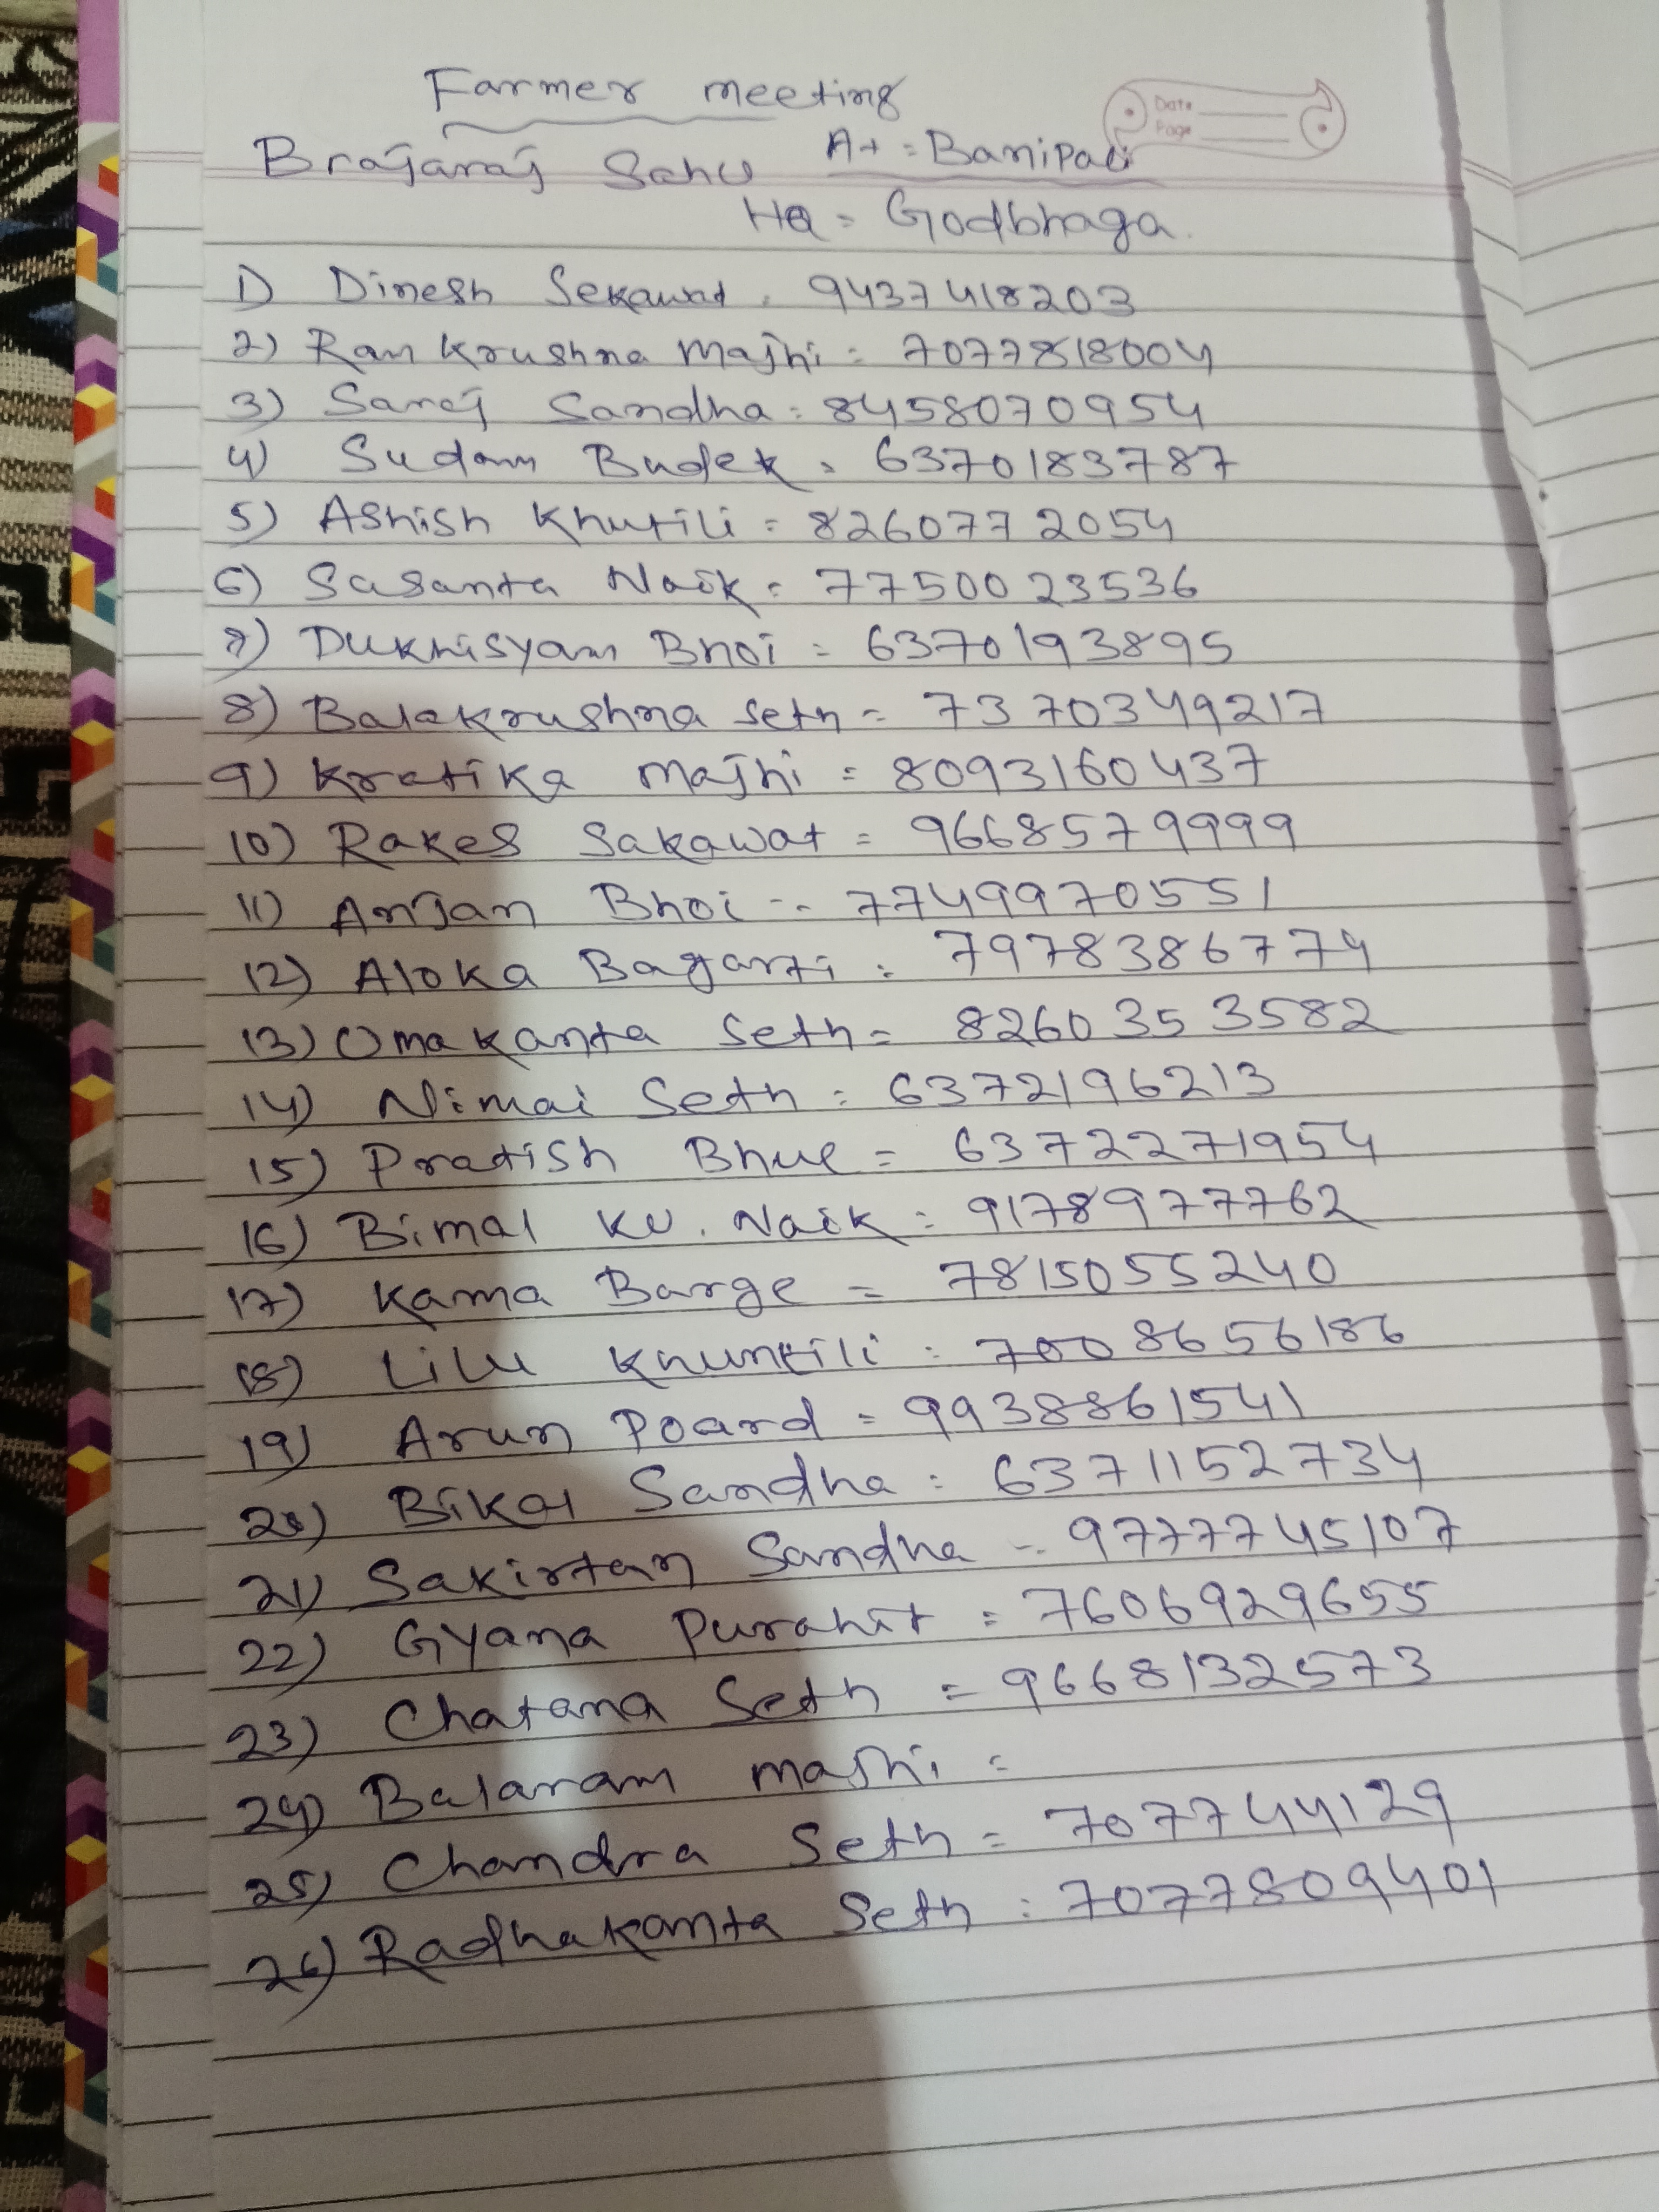 Farmer meeting
Date
Page
Brajaraj Sahu At = Banipali
HQ = Godbhaga.
1) Dinesh Sekawat . 9437418203
2) Ram Krushna Majhi = 7077818004
3) Saroj Sandha = 8458070954
4) Sudam Budek = 6370183787
5) Ashish Khutili = 8260772054
6) Sasanta Naik = 7750023536
7) Dukhisyam Bhoi = 6370193895
8) Balakrushna Seth = 7370349217
9) Kratika Majhi = 8093160437
10) Rakes Sakawat = 9668579999
11) Anjan Bhoi -- 7749970551
12) Aloka Bagarti = 7978386774
13) Omakanta Seth = 8260353582
14) Nimai Seth = 6372196213
15) Pratish Bhue = 6372271954
16) Bimal Ku. Naik = 9178977762
17) Kama Barge = 7815055240
18) Lilu Khuntili = 7008656186
19) Arun Poard = 9938861541
20) Bikas Sandha = 6371152734
21) Sakirtan Sandha -- 9777745107
22) Gyana Purahit = 7606929655
23) Chatana Seth = 9668132573
24) Balaram Majhi =
25) Chandra Seth = 707744129
26) Radhakanta Seth = 7077809401